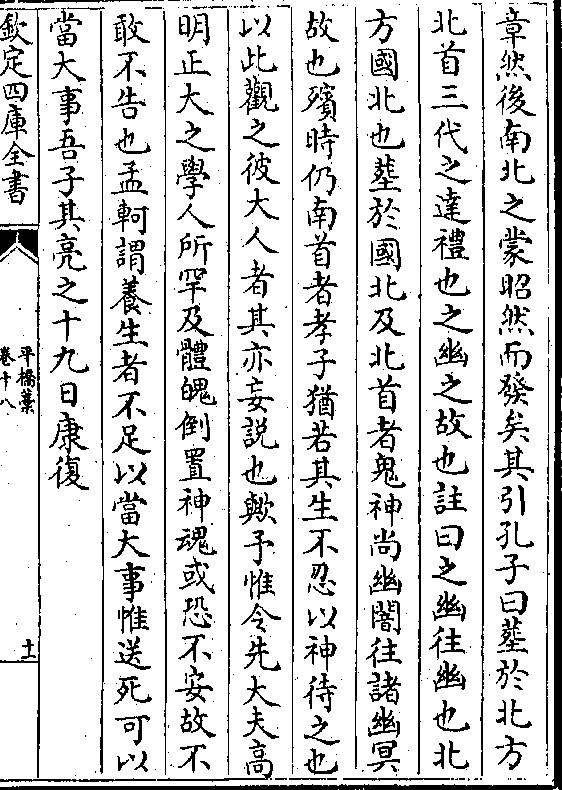 章然後南北之蒙昭然而發矣其引孔子曰塟於北方
北首三代之達禮也之幽之故也註曰之幽往幽也北
方國北也塟於國北及北首者鬼神尚幽闇往諸幽冥
故也殯時仍南首者孝子猶若其生不忍以神待之也
以此觀之彼大人者其亦妄說也歟予惟令先大夫高
明正大之學人所罕及體魄倒置神魂或恐不安故不
敢不告也孟軻謂養生者不足以當大事惟送死可以
當大事吾子其亮之十九日康復
欽定四庫全書
平橋藁
卷十八
十一